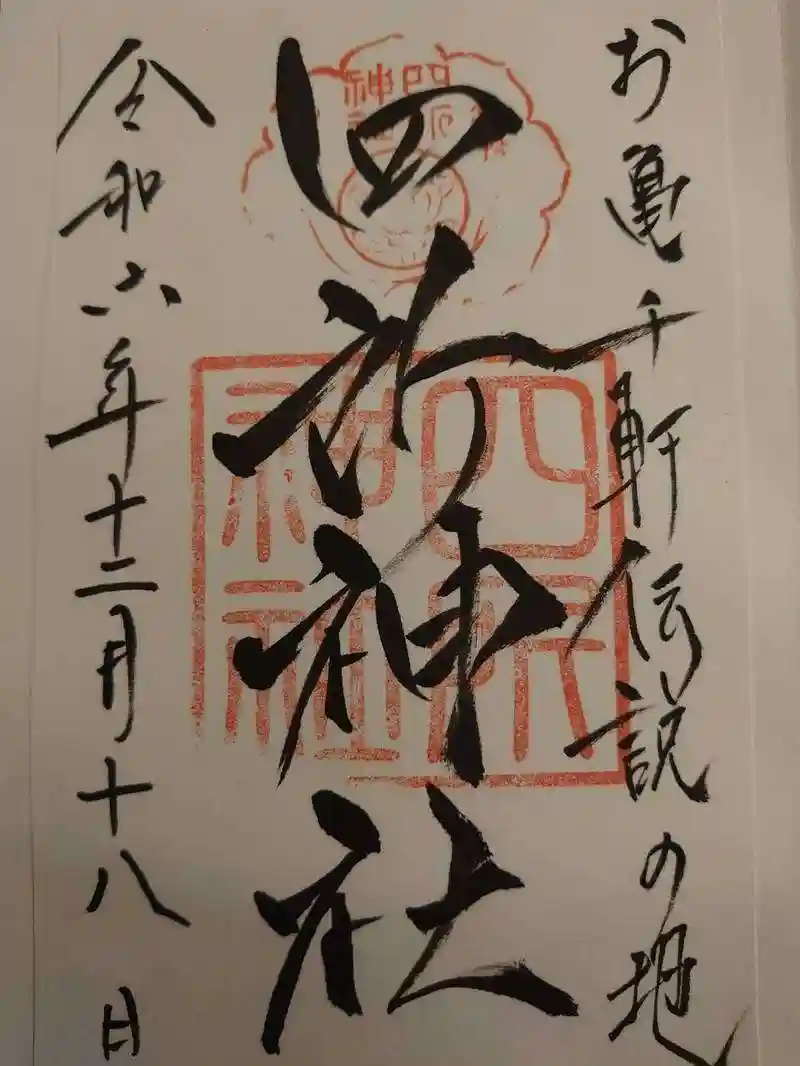 お亀千軒伝説の地
四所神社
四所
神社
令和六年十二月十八日